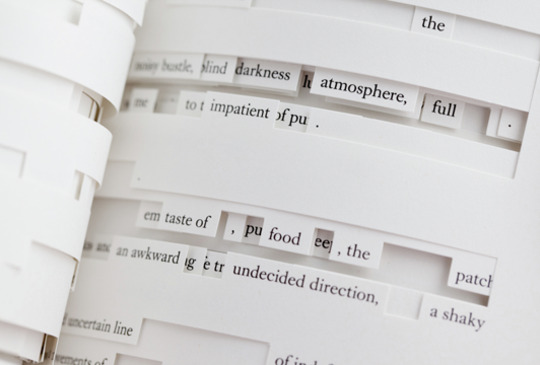 the
noisy bustle, blind darkness atmosphere, full .
me to impatient of pu .
em taste of , pu food ee , the patch
an awkward undecided direction, a shaky
uncertain line
of